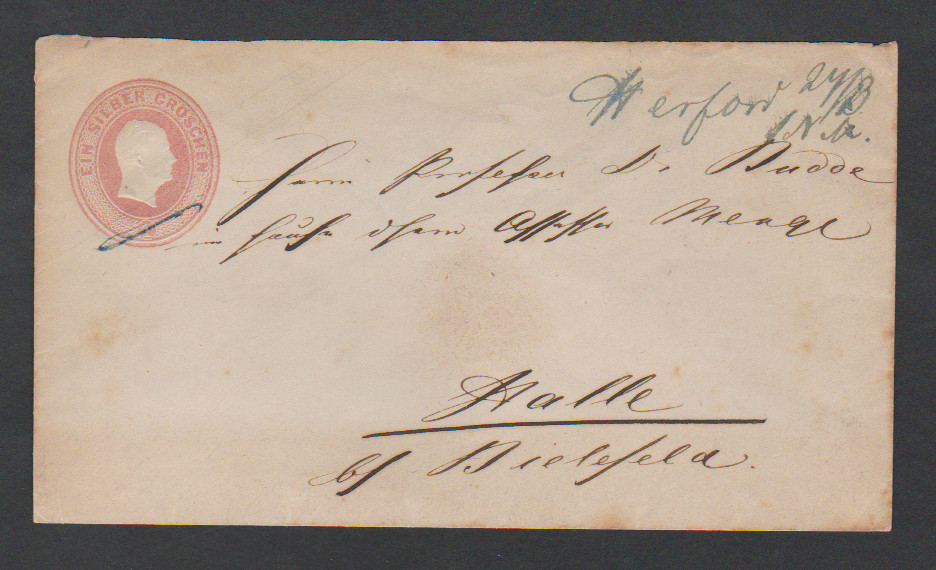 EIN SILBER GROSCHEN
Herford 24/8
Herrn Professer Dr. Budde
im Hause des Herrn Assessor Menge
Halle
bei Bielefeld.